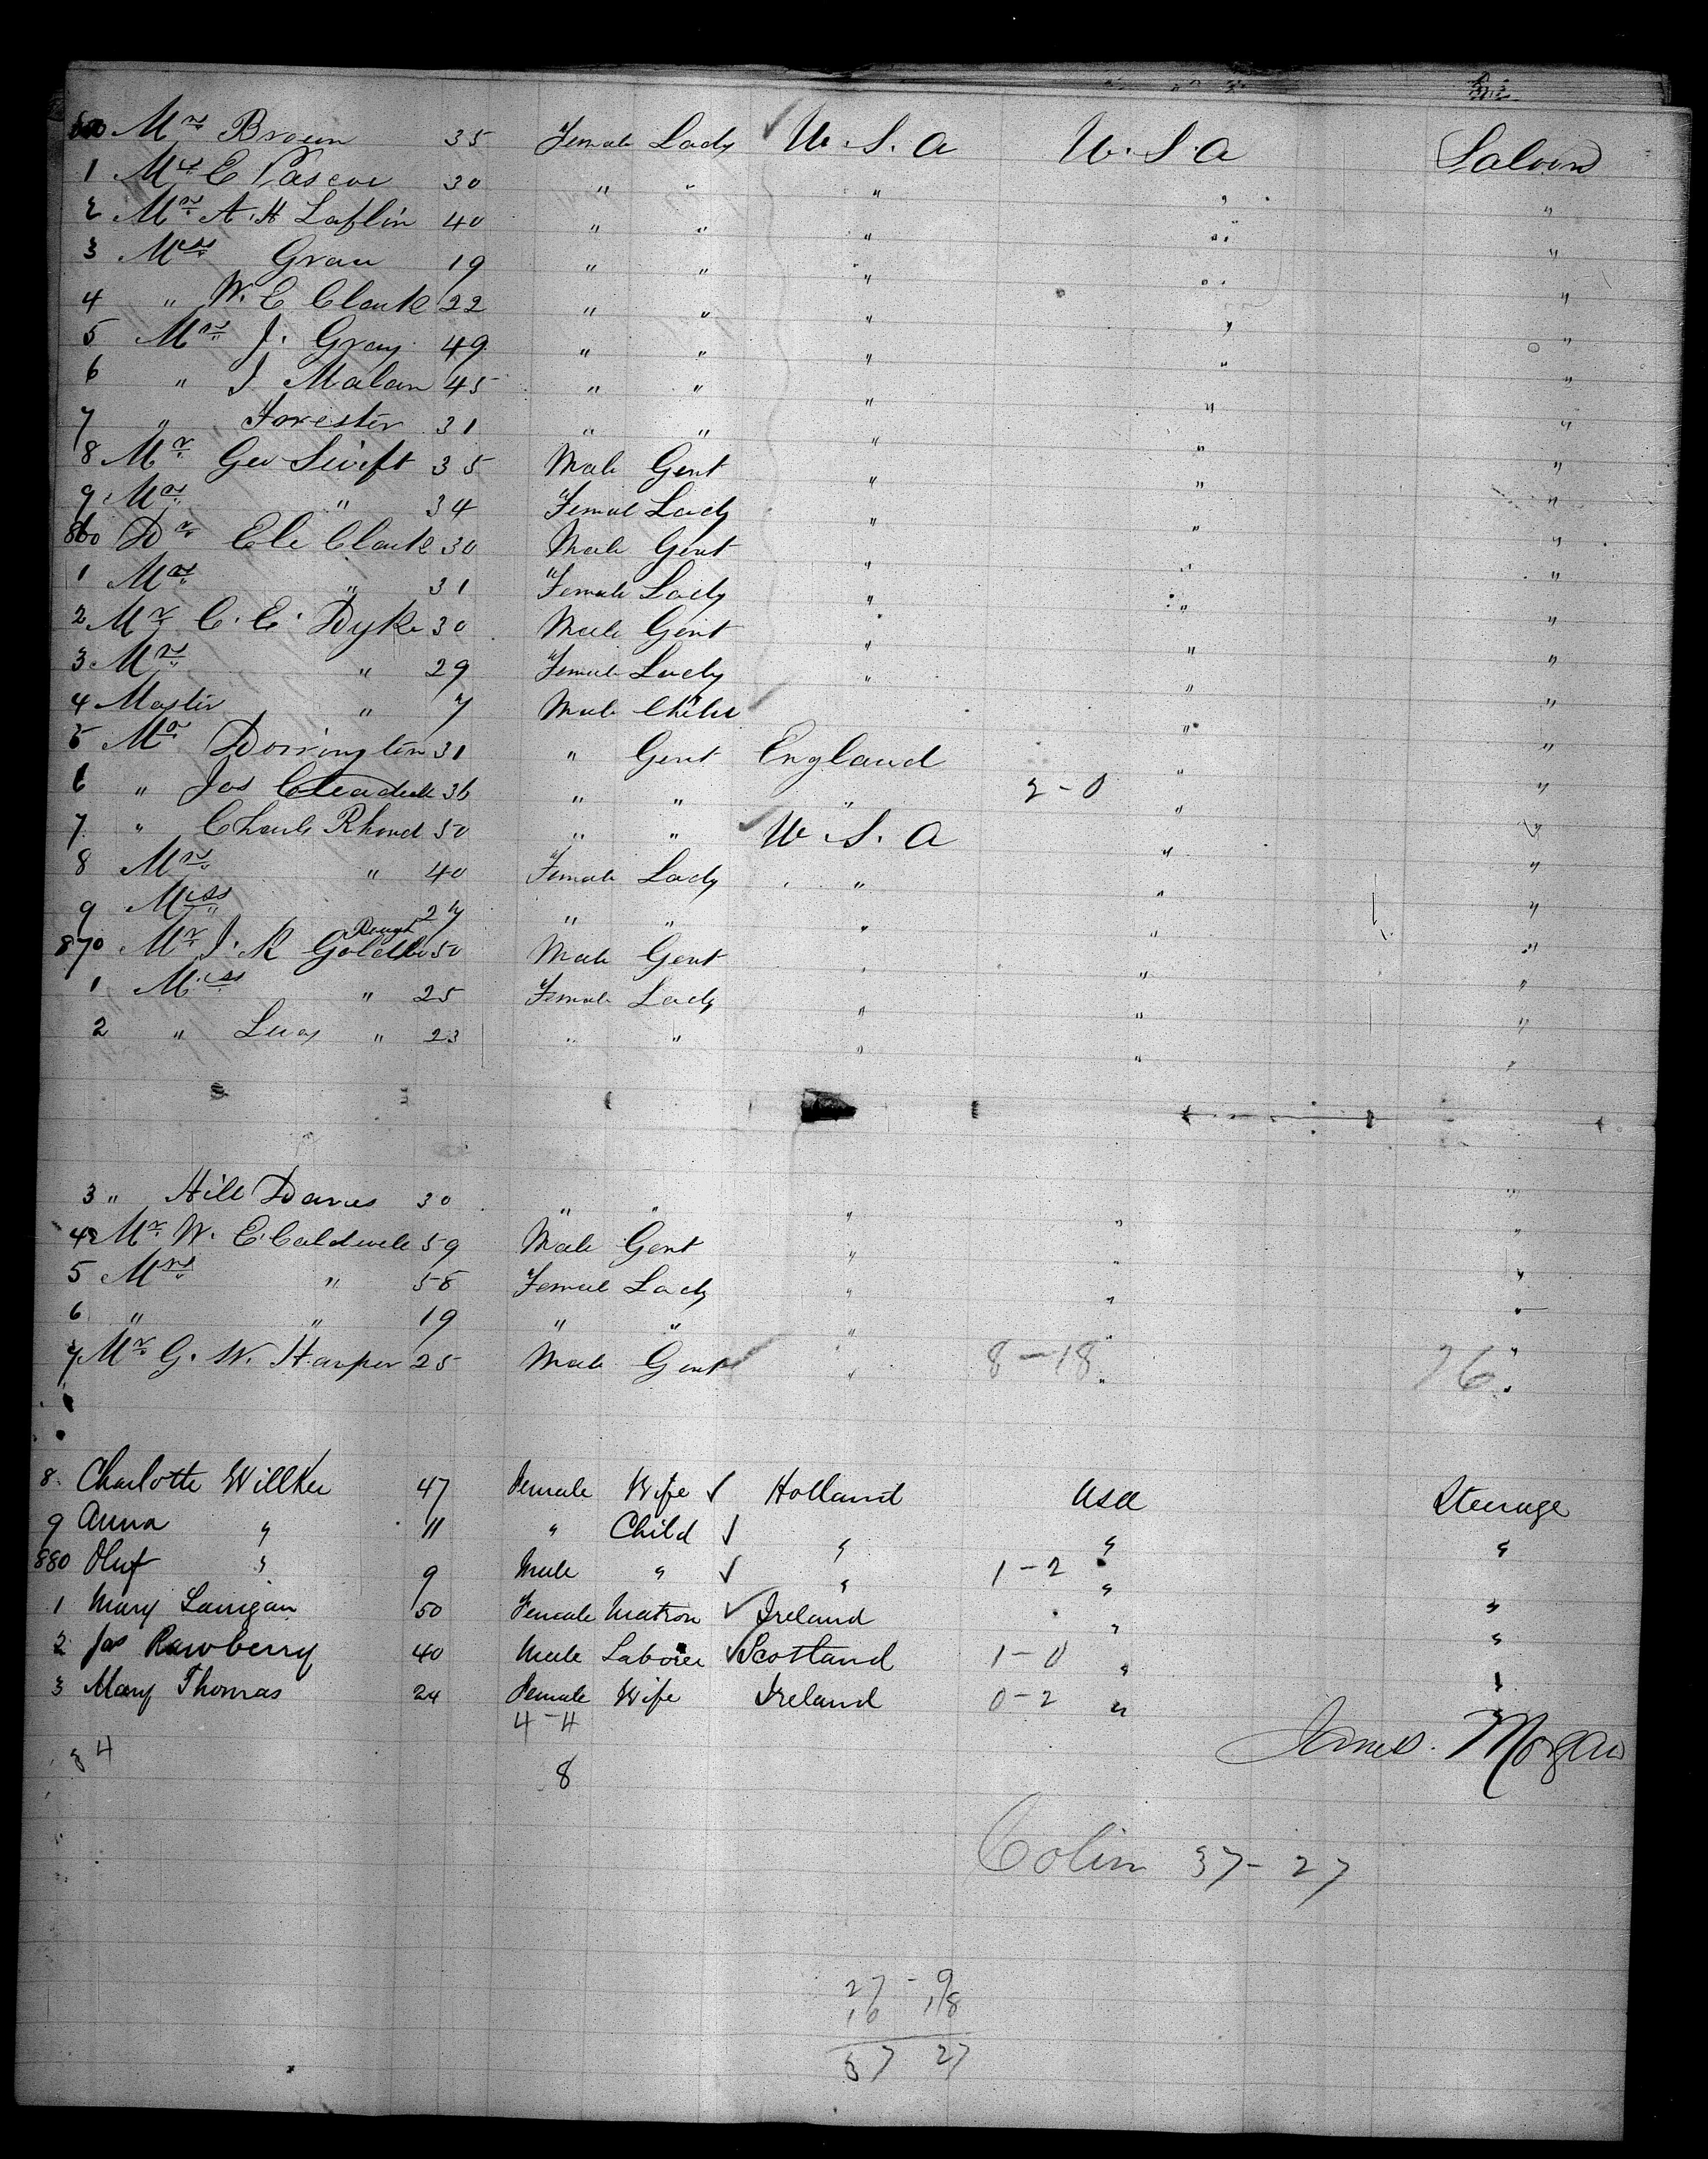 850 Mrs Brown 35 Female Lady U.S.A U.S.A Saloon
1 Mrs C Pascoe 30 " " " " "
2 Mrs A.H Laflin 40 " " " " "
3 Miss Grau 19 " " " " "
4 " W. E Clark 22 " " " " "
5 Mrs J. Gray 49 " " " " "
6 " J Malan 45 " " " " "
7 " Forester 31 " " " " "
8 Mr Geo Swift 35 Male Gent " " "
9 Mrs " 34 Female Lady " " "
860 Dr Ele Clark 30 Male Gent " " "
1 Mrs " 31 Female Lady " " "
2 Mr C. E. Dyke 30 Male Gent " " "
3 Mrs " 29 Female Lady " " "
4 Master " 7 Male Child " "
5 Mr Dorrington 31 " Gent England " "
6 " Jas 36 " " " 2-0 " "
7 " Charls Rhond 50 " " U.S.A " "
8 Mrs " 40 Female Lady " " "
9 Miss " 27 " " " " "
870 Mr J. R Goldsbo Rough 50 Male Gent " " "
1 Miss " 25 Female Lady " " "
2 " Lucy " 23 " " " " "
3 " Hill Davies 30 " " " " "
4 Mr W. E. Caldwell 59 Male Gent " " "
5 Mrs " 58 Female Lady " " "
6 " " 19 " " " " "
7 Mr G. W. Harper 25 Male Gent " 8-18 " 76 "
8 Charlotte Willker 47 Female Wife Holland USA Steerage
9 Anna " 11 " Child " " "
880 Oluf " 9 Male " " 1-2 " "
1 Mary Lanigan 50 Female Matron Ireland " "
2 Jas Rawberry 40 Male Laborer Scotland 1-0 " "
3 Mary Thomas 24 Female Wife Ireland 0-2 " "
4-4
84
8
James Morgan
Colin 37-27
27-9
10 18
37 27